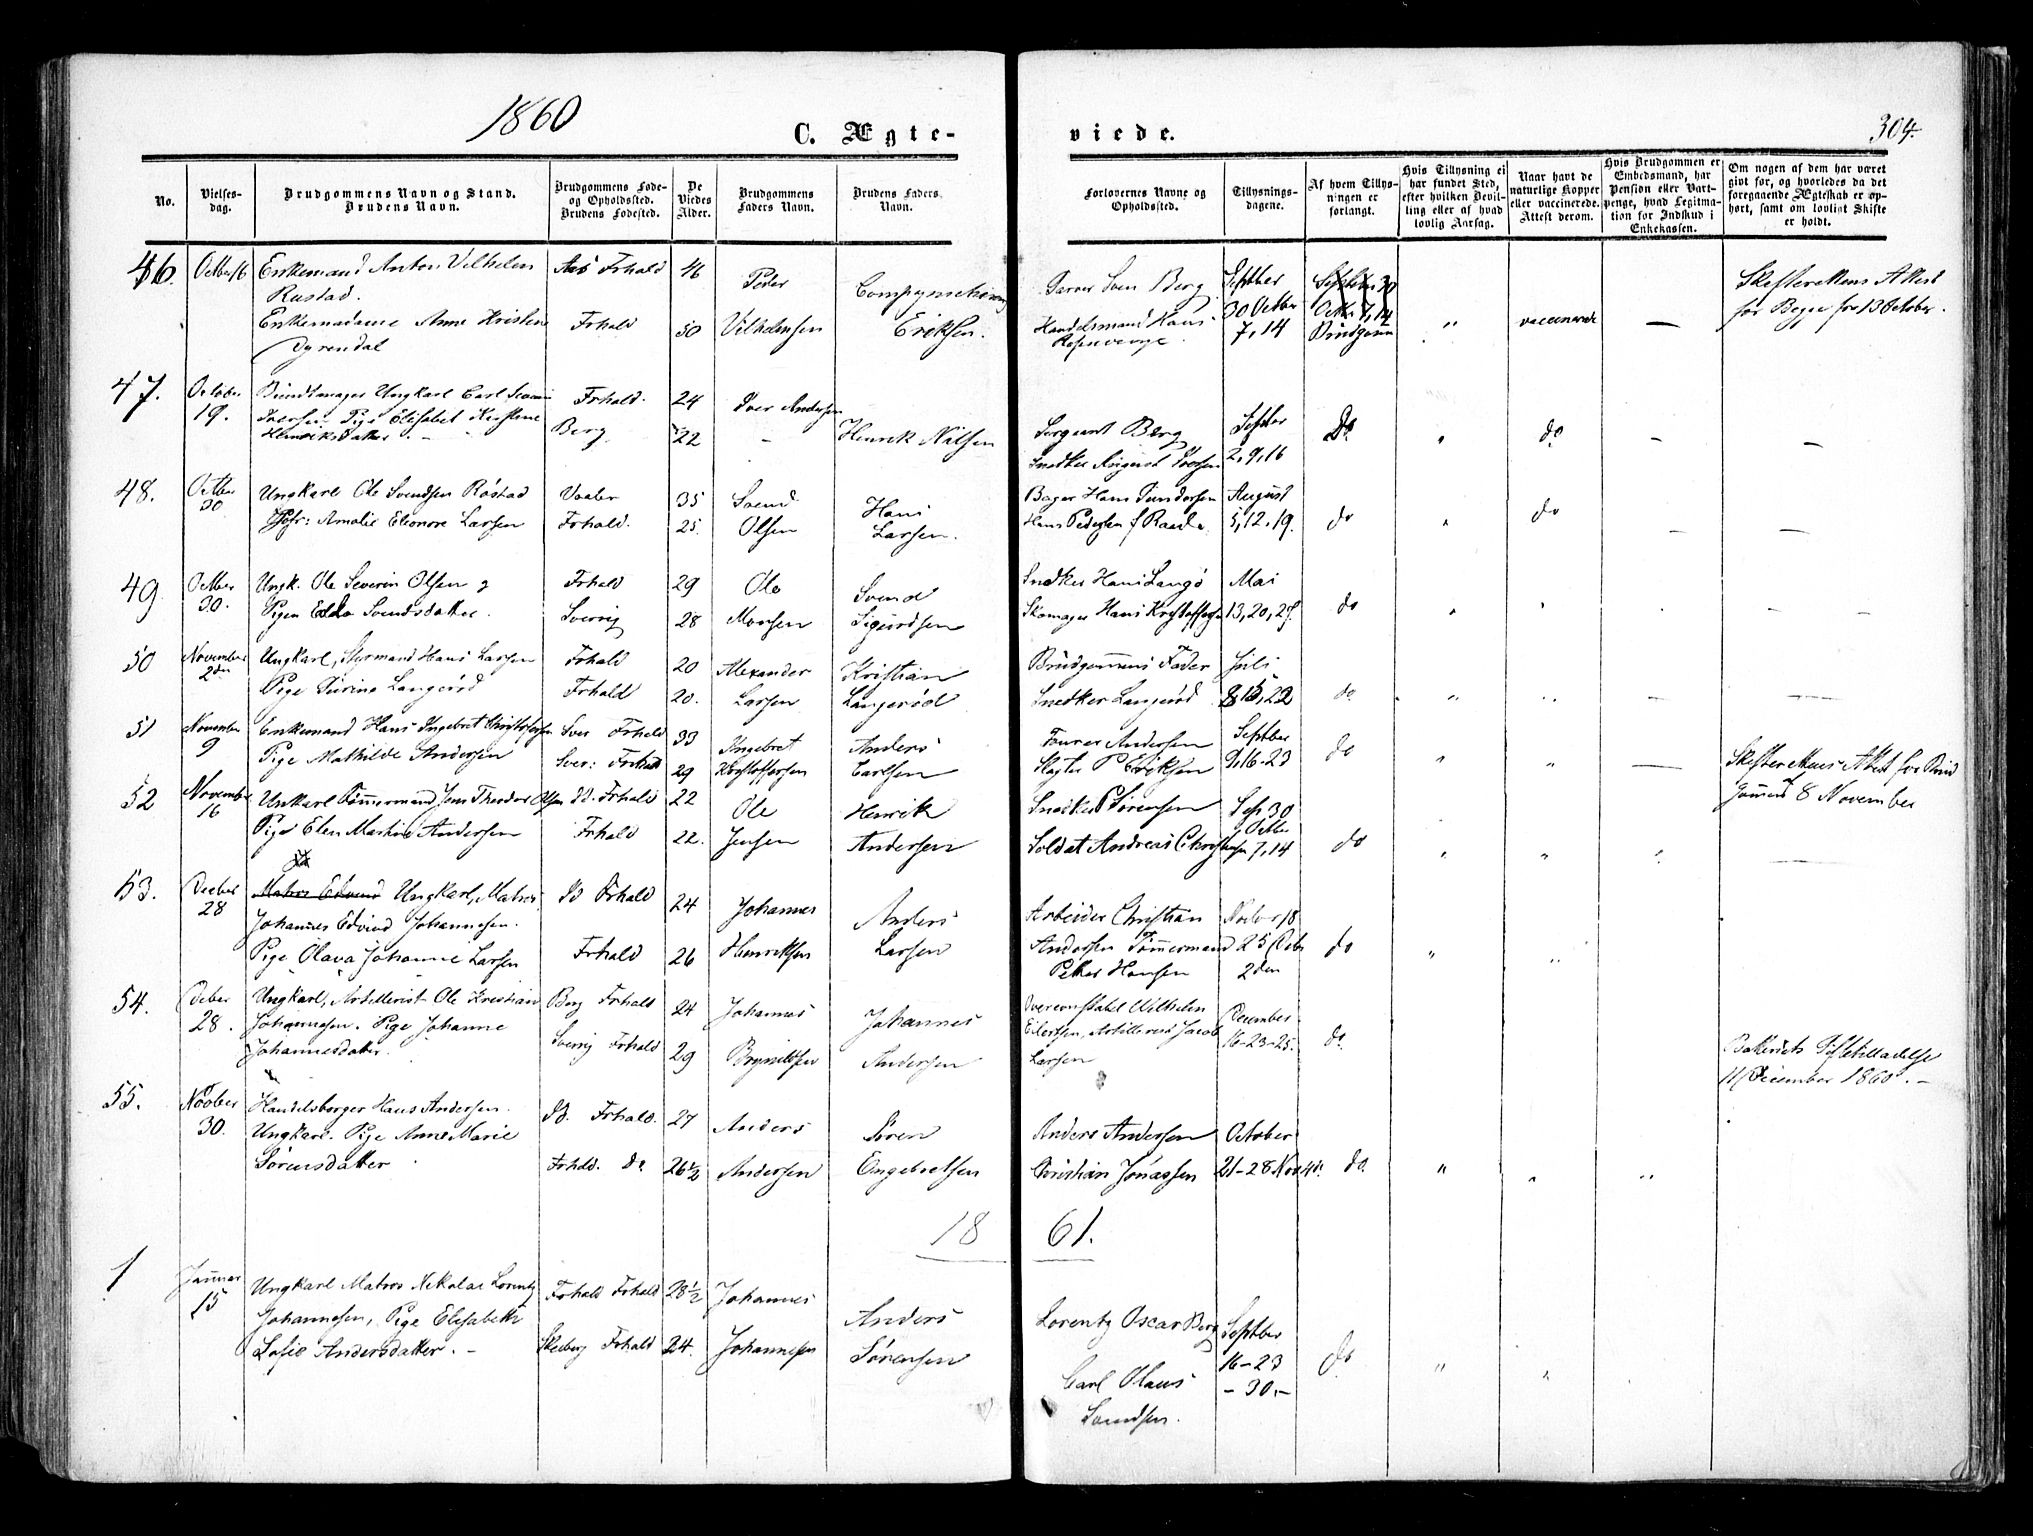 1860
C. Ægte-
viede.
304.
No.
Vielses-
dag.
Brudgommens Navn og Stand.
Brudens Navn.
Brudgommens Føde-
og Opholdssted.
Brudens Fødested.
De
Viedes
Alder.
Brudgommens
Faders Navn.
Brudens Faders
Navn.
Forlovernes Navne og
Opholdssted.
Tillysnings-
dagene.
Af hvem Tillys-
ningen er
forlangt.
Hvis Tillysning ei
har fundet Sted,
efter hvilken Bevil-
ling eller af hvad
lovlig Aarsag.
Naar havt de
naturlige Kopper
eller vaccinerede.
Attest derom.
Hvis Brudgommen er
Embedsmand, har
Pension eller Vart-
penge, hvad Legitima-
tion for Indskud i
Enkekassen.
Om nogen af dem har været
gift før, og hvorledes da det
foregaaende Ægteskab er op-
hørt, samt om lovligt Skifte
er holdt.
46. Octber 16 Enkemand Anton Vilhelm
Rustad.
Frhald 46 Peder
Enkemadame Anne Kristine
Dyrendal
Frhald 50 Vilhelmsen Eriksen.
Garver Sven Berg
Handelsmand Hans
Septber
30 Octber
7, 14
Brudgom
" vaccinerede —
Skifterettens Attest
for Begge fra 13 October.
47. October
19.
Ungkarl Carl
Iversen. Pige Elisabet Kirstine
Henriksdatter. -
Frhald. 24 Iver Andersen
Berg 22 - Henrik Nilsen
Sergeant Berg
Snedker August Iversen
Septber
2, 9, 16
Do " do - -
48. Octber
30
Ungkarl Ole Svendsen Røstad
Jfr: Amalie Eleonore Larsen
Vaaler 35 Svend Hans
Frhald. 25. Olsen Larsen.
Bager Hans Gundersen
Hans Pedersen f Raade
August
5, 12, 19.
do " do - -
49. Octber
30.
Ungk. Ole Severin Olsen g
Pigen Edda Svendsdatter.
Frhald 29 Ole Svend
Sverrig 28 Monsen Sigurdsen
Snedker Hans Langø
Skomager Hans Kristoffersen
Mai
13, 20, 27.
do " " - -
50 November
2den
Ungkarl, Styrmand Hans Larsen
Pige Turine Langerød
Frhald 20 Alexander Kristian
Frhald 20. Larsen Langerød
Brudgommens Fader
Snedker Langerød
Juli
8, 15, 22
do " " — —
51 November
9
Enkemand Hans Ingebret Christoffersen
Pige Mathilde Andersen
Sver Frhald 33 Ingebret Anders
Sver: Frhald 29 Kristoffersen Carlsen
Fourer Andersen
Slagter P Eriksen
Septber
9, 16-23
do " " —
Skifterettens Attest for Brud
gommen 8 November
52 November
16
Unkarl Tømmermand, Jens Theodor Olsen
Pige Elen Martine Andersen
Id. Frhald 22 Ole Henrik
Frhald 22. Jensen Andersen
Snedker P Sørensen
Soldat Andreas Christensen
Sep 30
Octber
7, 14
do " " " —
53. Decber
28
Matros Edvind Ungkarl, Matros
Johannes Edvind Johannesen.
Pige Olava Johanne Larsen
Id Frhald 24 Johannes Anders
Frhald 26 Henriksen Larsen
Arbeider Christian
Andersen Tømmermand
Petter Hansen
Novber 18
25 Decbr
2den
do " "
54. Decber
28.
Ungkarl, Artillerist Ole Kristian
Johannesen. Pige Johanne
Johannesdatter.
Berg Frhald 24 Johannes Johannes
Sverrig Frhald 29 Brynildsen Andersen
Overconstabel Wilhelm
Eilertsen, Artillerist Jacob
Larsen
December
16-23-25.
do.
11 December 1860. -
55. Novber
30.
Handelsborger Hans Andersen.
Ungkarl. Pige Anne Marie
Sørensdatter
Id. Frhald. 27 Anders Søren
Frhld. do 26½ Andersen Engebretsen
Anders Andersen
Christian Jonassen
October
21-28 Nov 4de.
do. " " "
18 61.
1 Januar
15
Ungkarl Matros Nikolai Lorentz
Johannesen, Pige Elisabeth
Sofie Andersdatter. -
Frhald Frhald 28½ Johannes Anders
Skeberg Frhald 24. Johannesen Sørensen
Lorentz Oscar Berg
Carl Olaus
Svendsen.
Septber
16-23
- 30. -
do " "